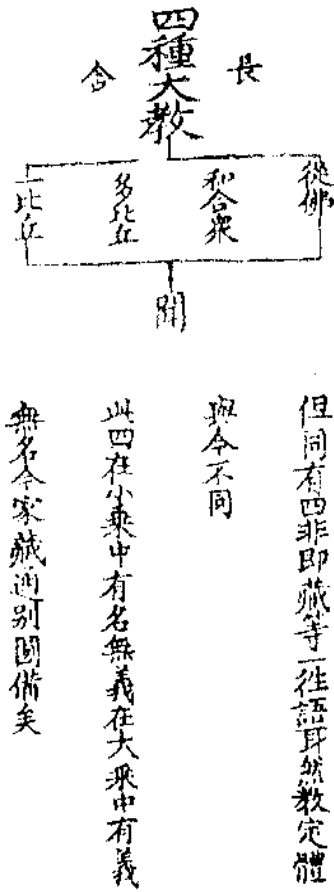 四種大教
長
含
從佛
和合衆
多比丘
一比丘
聞
但同有四非即藏等一往語耳然教定體
與今不同
此四在小乘中有名無義在大乘中有義
無名今家藏通別圓備矣